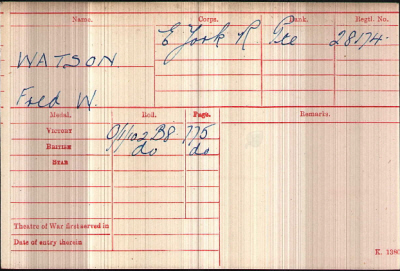 Name. Corps. Rank. Regtl. No.
WATSON E York R Pte 28174
Fred W.
Medal. Roll. Page. Remarks.
VICTORY O/1/102B8 775
BRITISH do do
STAR
Theatre of War first served in
Date of entry therein
K. 1380